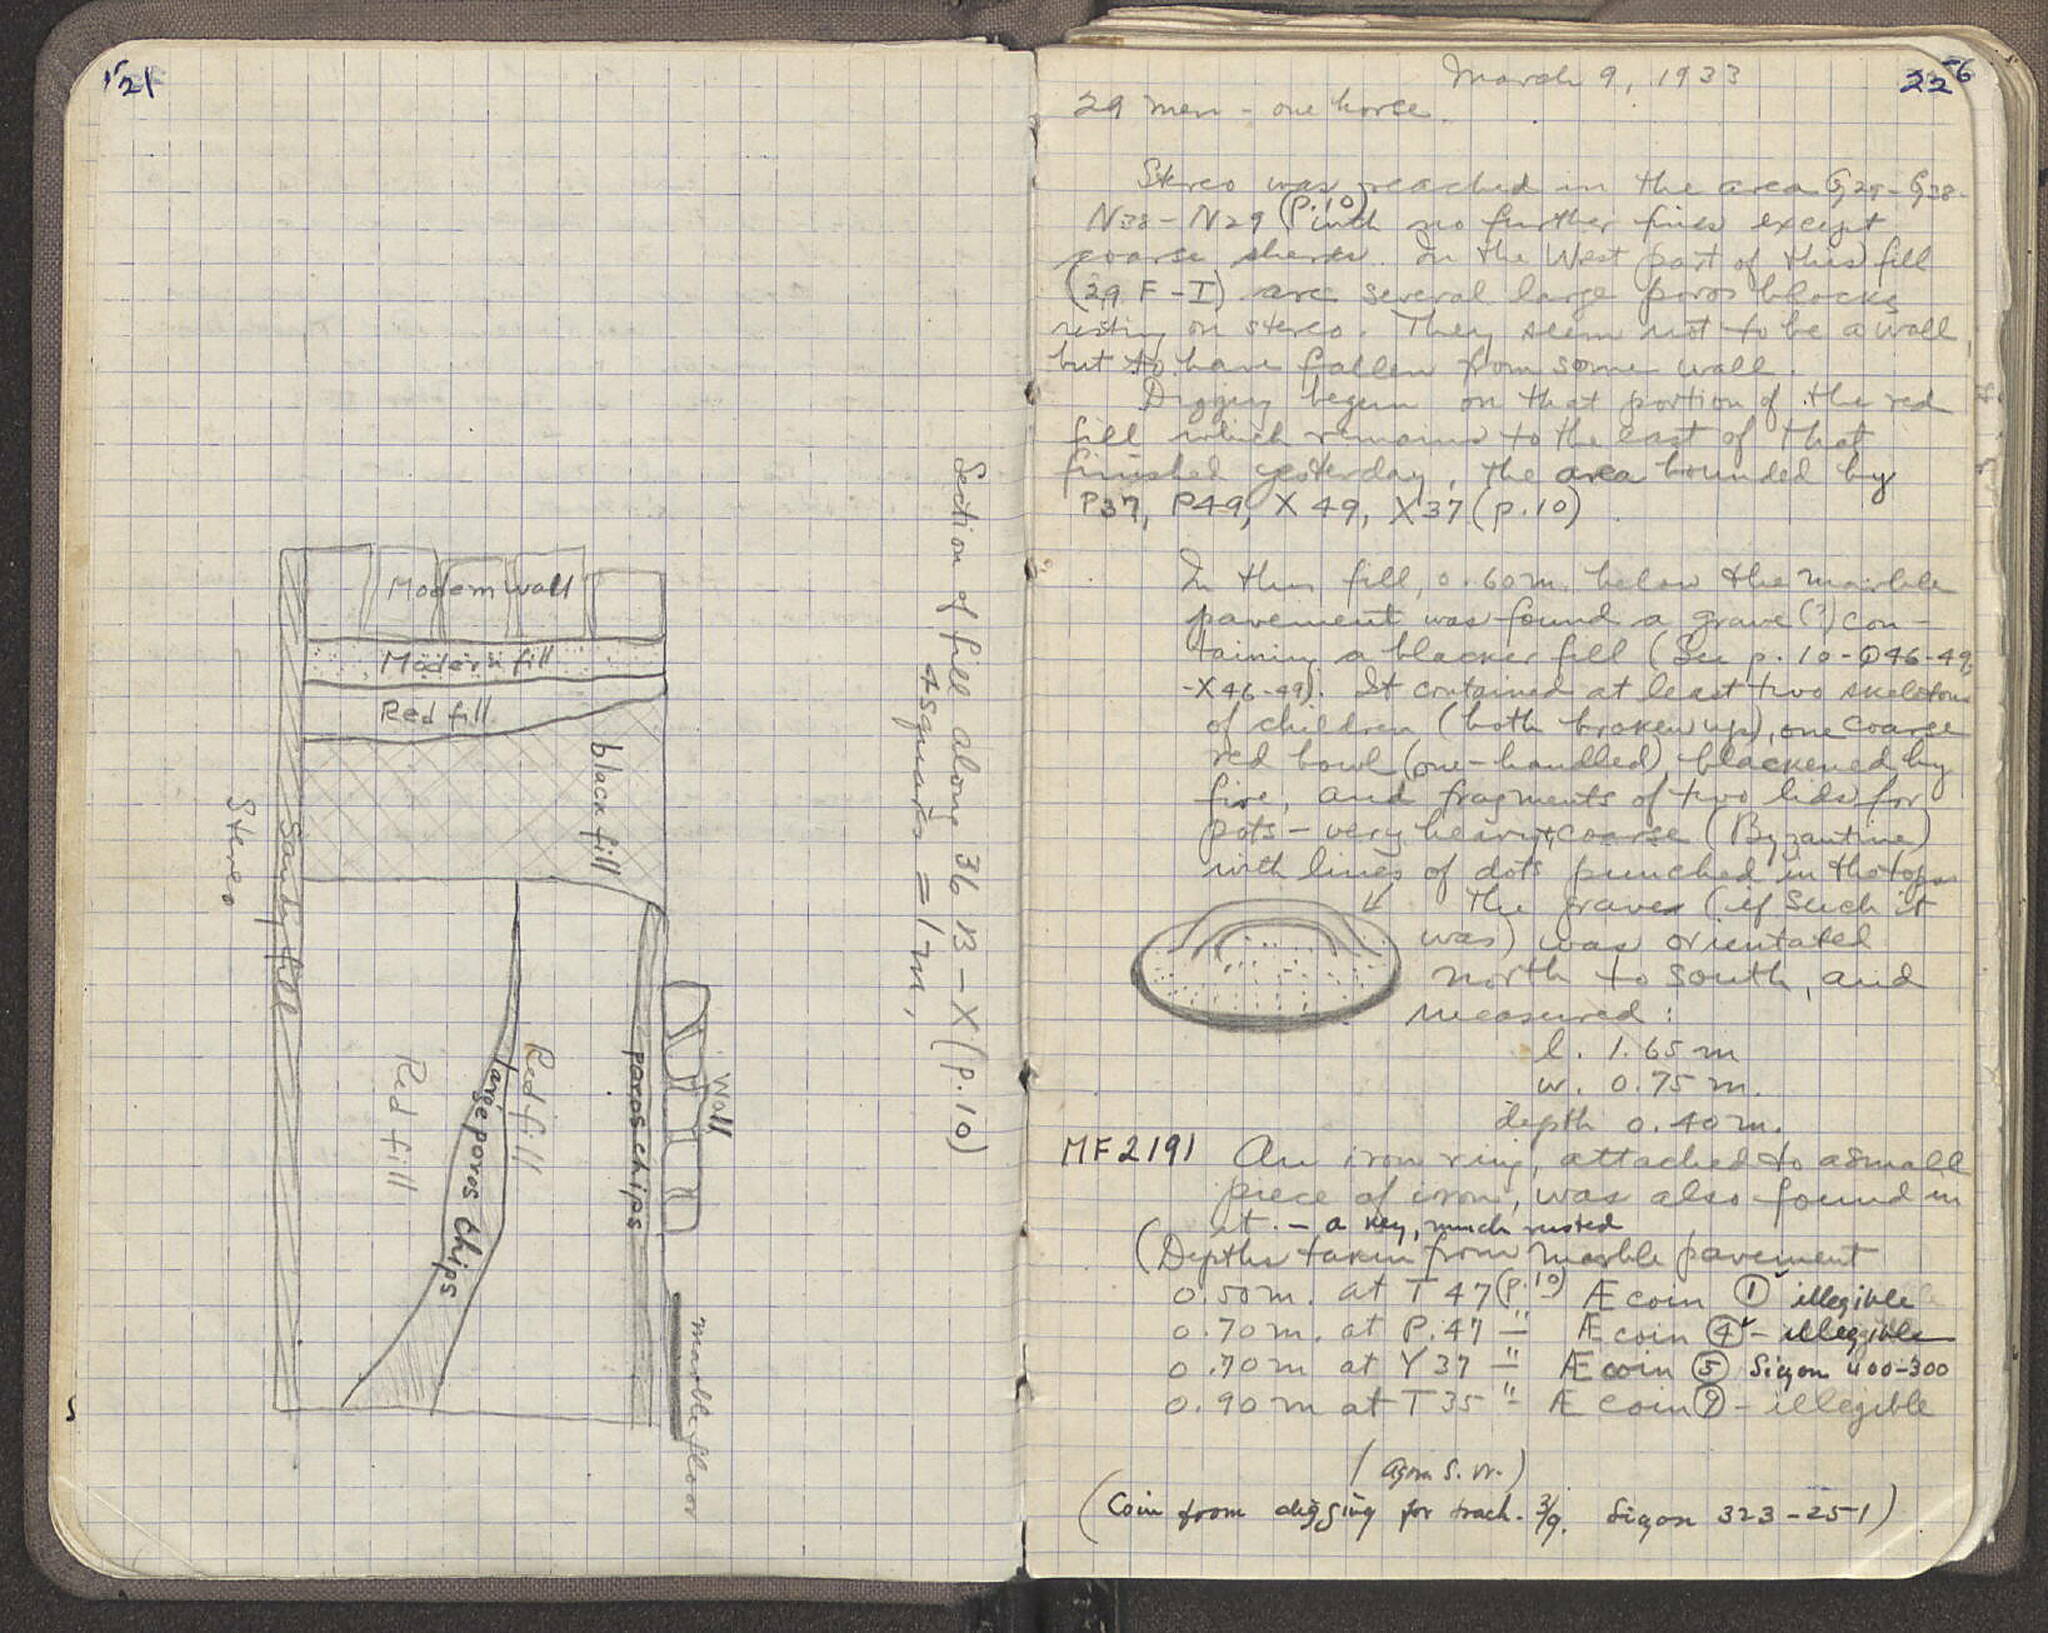 21
Modern wall
Modern fill
Red fill
black fill
Sandy fill
Stereo
Red fill
large poros chips
Red fill
poros chips
Wall
marble floor
Section of fill along 36 B - X (p.10)
4 squares = 1 m.
22
March 9, 1933
29 men - one horse.
Stereo was reached in the area G29 - G38 -
N38 - N29 (p.10) with no further finds except
coarse sherds. In the West part of this fill
(29 F - I) are several large poros blocks
resting on stereo. They seem not to be a wall,
but to have fallen from some wall.
Digging begun on that portion of the red
fill which remains to the east of that
finished yesterday, the area bounded by
P37, P49, X49, X37 (p.10)
In this fill, 0.60 m. below the marble
pavement was found a grave (?) con-
taining a blacker fill (See p. 10 - Q46-49,
-X46-49). It contained at least two skeletons
of children (both broken up), one coarse
red bowl (one-handled) blackened by
fire, and fragments of two lids for
pots - very heavy & coarse (Byzantine)
with lines of dots punched in the tops
The grave (if such it
was) was orientated
north to south, and
measured:
l. 1.65 m
w. 0.75 m.
depth 0.40 m.
MF 2191 An iron ring, attached to a small
piece of iron, was also found in
it. - a key, much rusted
(Depths taken from marble pavement
0.50 m. at T 47 (p.10) Æ coin ① illegible
0.70 m. at P. 47 " Æ coin ④ - illegible
0.70 m at Y 37 " Æ coin ⑤ Sicyon 400-300
0.90 m at T 35 " Æ coin ⑨ - illegible
(Agora S. W.)
(Coin from digging for track. 3/9. Sicyon 323-251)